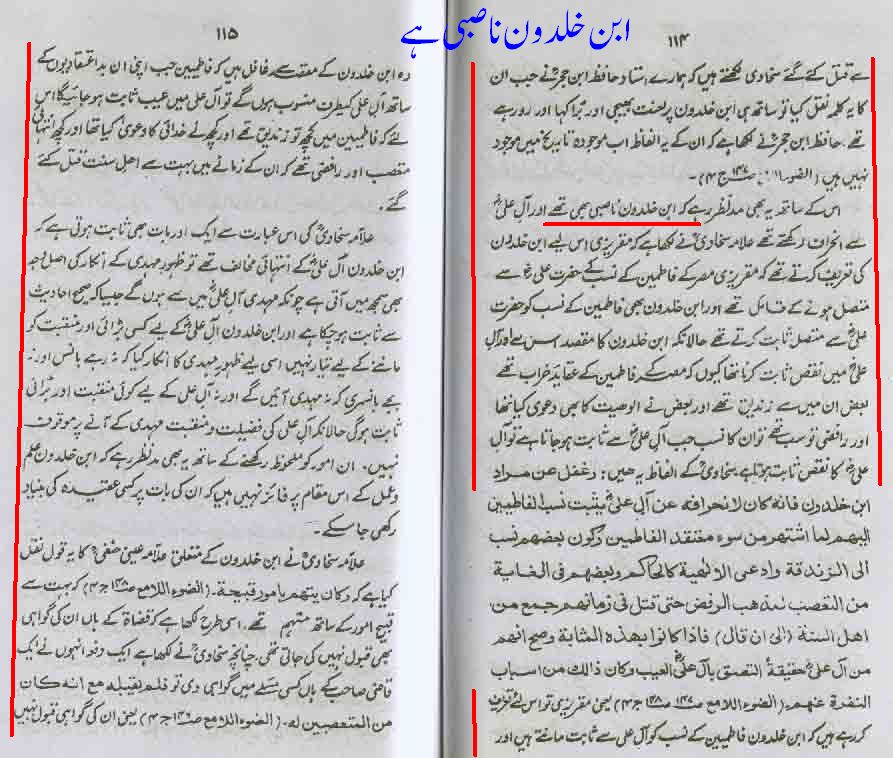 ابن خلدون ناصبی ہے
۱۱۴
سے قتل کئے گئے سخاوی لکھتے ہیں کہ ہمارے استاد حافظ ابن حجرؒ نے جب ان
کا یہ کلمہ نقل کیا تو ساتھ ہی ابن خلدون پر لعنت بھیجی اور بُرا کہا اور رو رہے
تھے۔ حافظ ابن حجرؒ نے لکھا ہے کہ ان کے یہ الفاظ اب موجودہ تاریخ میں موجود
نہیں ہیں (الضوء ص۱۴۷ ج ۴)۔
اس کے ساتھ یہ بھی مدنظر رہے کہ ابن خلدون ناصبی بھی تھے اور آل علیؓ
سے انحراف رکھتے تھے علامہ سخاویؒ نے لکھا ہے کہ مقریزی اس لیے ابن خلدون
کی تعریف کرتے تھے کہ مقریزی مصر کے فاطمین کے نسب کے حضرت علیؓ سے
متصل ہونے کے قائل تھے اور ابن خلدون بھی فاطمین کے نسب کو حضرت
علیؓ سے متصل ثابت کرتے تھے حالانکہ ابن خلدون کا مقصد اس سے آل
علیؓ میں نقص ثابت کرنا تھا کیوں کہ مصر کے فاطمین کے عقاید خراب تھے
بعض ان میں سے زندیق تھے اور بعض نے الوہیت کا بھی دعوی کیا تھا
اور رافضی تو سب تھے تو ان کا نسب جب آل علیؓ سے ثابت ہوجاتا ہے تو آل
علیؓ کا نقص ثابت ہوتا ہے سخاویؒ کے الفاظ یہ ھیں: دغفل عن مراد
ابن خلدون فانه کان لانحرافه عن آل علیؓ یثبت نسب الفاطمیین
الیهم لما اشتهر من سوء معتقد الفاطمین وکون بعضهم نسب
الی الزندقة وادعی الالٰهیة کالحاکم وبعضهم فی الغایة
من التعصب لمذهب الرفض حتی قتل فی زمانهم جمع من
اهل السنة (الی ان قال) فاذا کانوا بهذه المثابة وصح انهم
من آل علیؓ حقیقة التصق بآل علیؓ العیب وکان ذالك من اسباب
النفرة عنهم۔ (الضوء اللامع ص۱۴۷ ص۱۴۸ ج۴) یعنی مقریزی تو اس لئے تعریف
کر رہے ہیں کہ ابن خلدون فاطمیین کے نسب کو آل علی سے ثابت مانتے ہیں اور
۱۱۵
وہ ابن خلدون کے مقصد سے غافل ہیں کہ فاطمیین جب اپنی ان بد اعتقادیوں کے
ساتھ آل علی کیطرف منسوب ہوں گے تو آل علی میں عیب ثابت ہوجائیگا اس
لئے کہ فاطمیین میں کچھ تو زندیق تھے اور کچھ نے خدائی کا دعویٰ کیا تھا اور کچھ انتہائی
متعصب اور رافضی تھے کہ ان کے زمانے میں بہت سے اھل سنت قتل کئے
گئے۔
علامہ سخاویؒ کی اس عبارت سے ایک اور بات بھی ثابت ہوتی ہے کہ
ابن خلدون آل علیؓ کے انتہائی مخالف تھے تو ظہور مہدی کے انکار کی اصل وجہ
بھی سمجھ میں آتی ہے چونکہ مہدی آل علیؓ میں سے ہوں گے جیسا کہ صحیح احادیث
سے ثابت ہوچکا ہے اور ابن خلدون آل علیؓ کے لیے کسی بڑائی اور منقبت کو
ماننے کے لیے تیار نہیں اسی لیے ظہور مہدی کا انکار کیا کہ نہ رہے بانس اور نہ
بجے بانسری کہ نہ مہدی آئیں گے اور نہ آل علی کے لیے کوئی منقبت اور بڑائی
ثابت ہوگی حالانکہ آل علی کی فضیلت ومنقبت مہدی کے آنے پر موقوف
نہیں۔ ان امور کو ملحوظ رکھنے کے ساتھ یہ بھی مدنظر رہے کہ ابن خلدون علم
وعمل کے اس مقام پر فائز نہیں ہیں کہ ان کی بات پر کسی عقیدہ کی بنیاد
رکھی جا سکے۔
علامہ سخاویؒ نے ابن خلدون کے متعلق علامہ عینی حنفیؒ کا یہ قول نقل
کیا ہے کہ وکان یتهم بامور قبیحة۔ (الضوء اللامع ص۱۴۸ ج۴) کہ بہت سے
قبیح امور کے ساتھ متہم تھے۔ اسی طرح لکھا ہے کہ قضاۃ کے ہاں ان کی گواہی
بھی قبول نہیں کی جاتی تھی چنانچہ سخاویؒ نے لکھا ہے ایک دفعہ انہوں نے ایک
قاضی صاحب کے ہاں کسی مسئلے میں گواہی دی تو فلم یقبله مع انه کان
من المتعصبین له۔ (الضوء اللامع ج۴) یعنی ان کی گواہی قبول نہیں